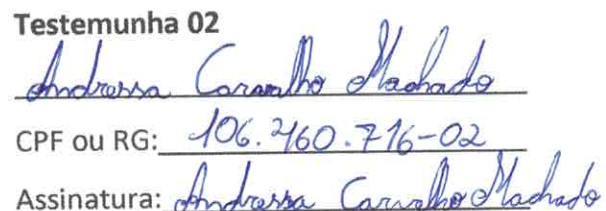 Testemunha 02
Andressa Carvalho Machado
CPF ou RG: 106.260.716-02
Assinatura: Andressa Carvalho Machado